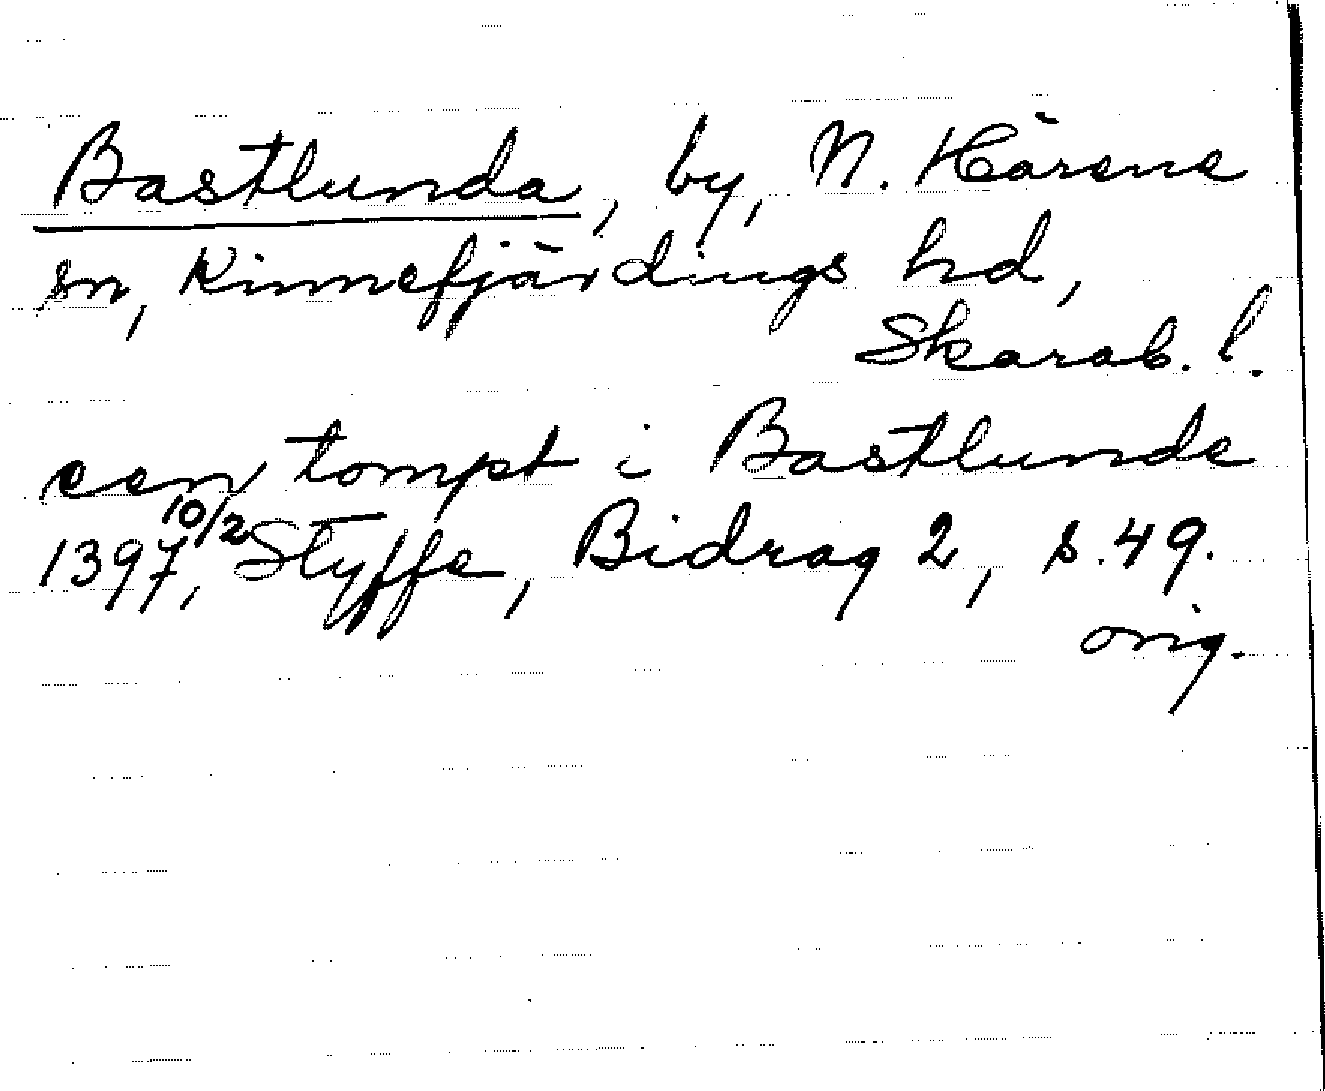 Bastlunda, by, N. Härene
sn, Kinnefjärdings hd,
Skarab. l.
een tompt i Bastlunde
1397 10/2, Styffe, Bidrag 2, s. 49.
orig.